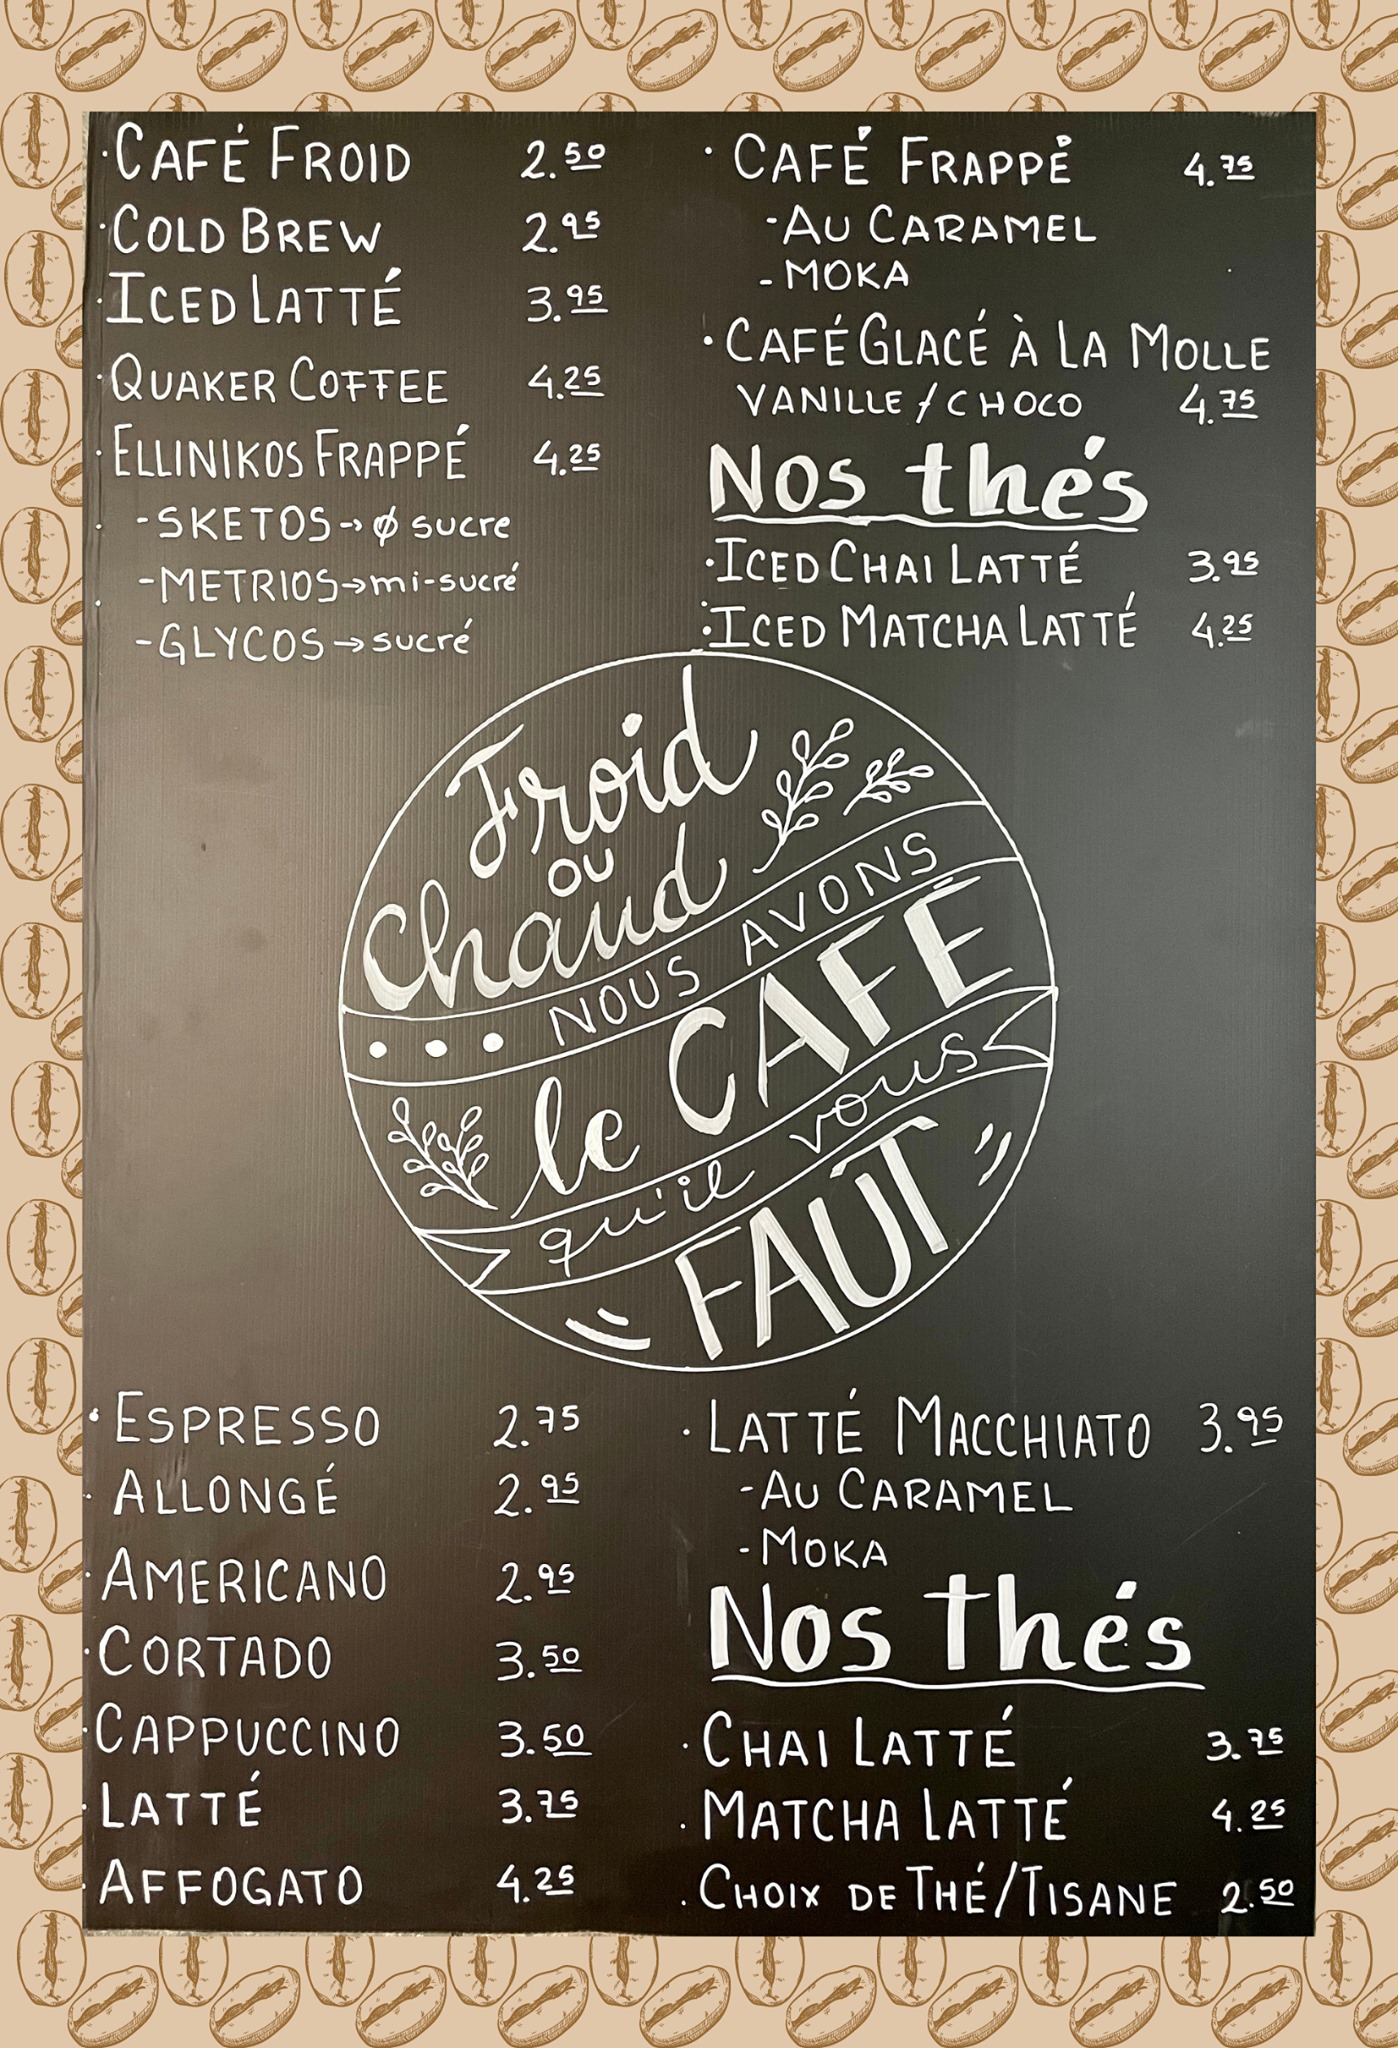 · CAFÉ FROID 2.50
· COLD BREW 2.95
· ICED LATTÉ 3.95
· QUAKER COFFEE 4.25
· ELLINIKOS FRAPPÉ 4.25
- SKETOS → ø sucre
- METRIOS → mi-sucré
- GLYCOS → sucré
· CAFÉ FRAPPÉ 4.75
- AU CARAMEL
- MOKA
· CAFÉ GLACÉ À LA MOLLE
VANILLE / CHOCO 4.75
Nos thés
· ICED CHAI LATTÉ 3.95
· ICED MATCHA LATTÉ 4.25
Froid
ou
Chaud
NOUS AVONS
le CAFÉ
qu'il vous
FAUT
· ESPRESSO 2.75
· ALLONGÉ 2.95
· AMERICANO 2.95
· CORTADO 3.50
· CAPPUCCINO 3.50
· LATTÉ 3.75
· AFFOGATO 4.25
· LATTÉ MACCHIATO 3.95
- AU CARAMEL
- MOKA
Nos thés
· CHAI LATTÉ 3.75
· MATCHA LATTÉ 4.25
· CHOIX DE THÉ/TISANE 2.50